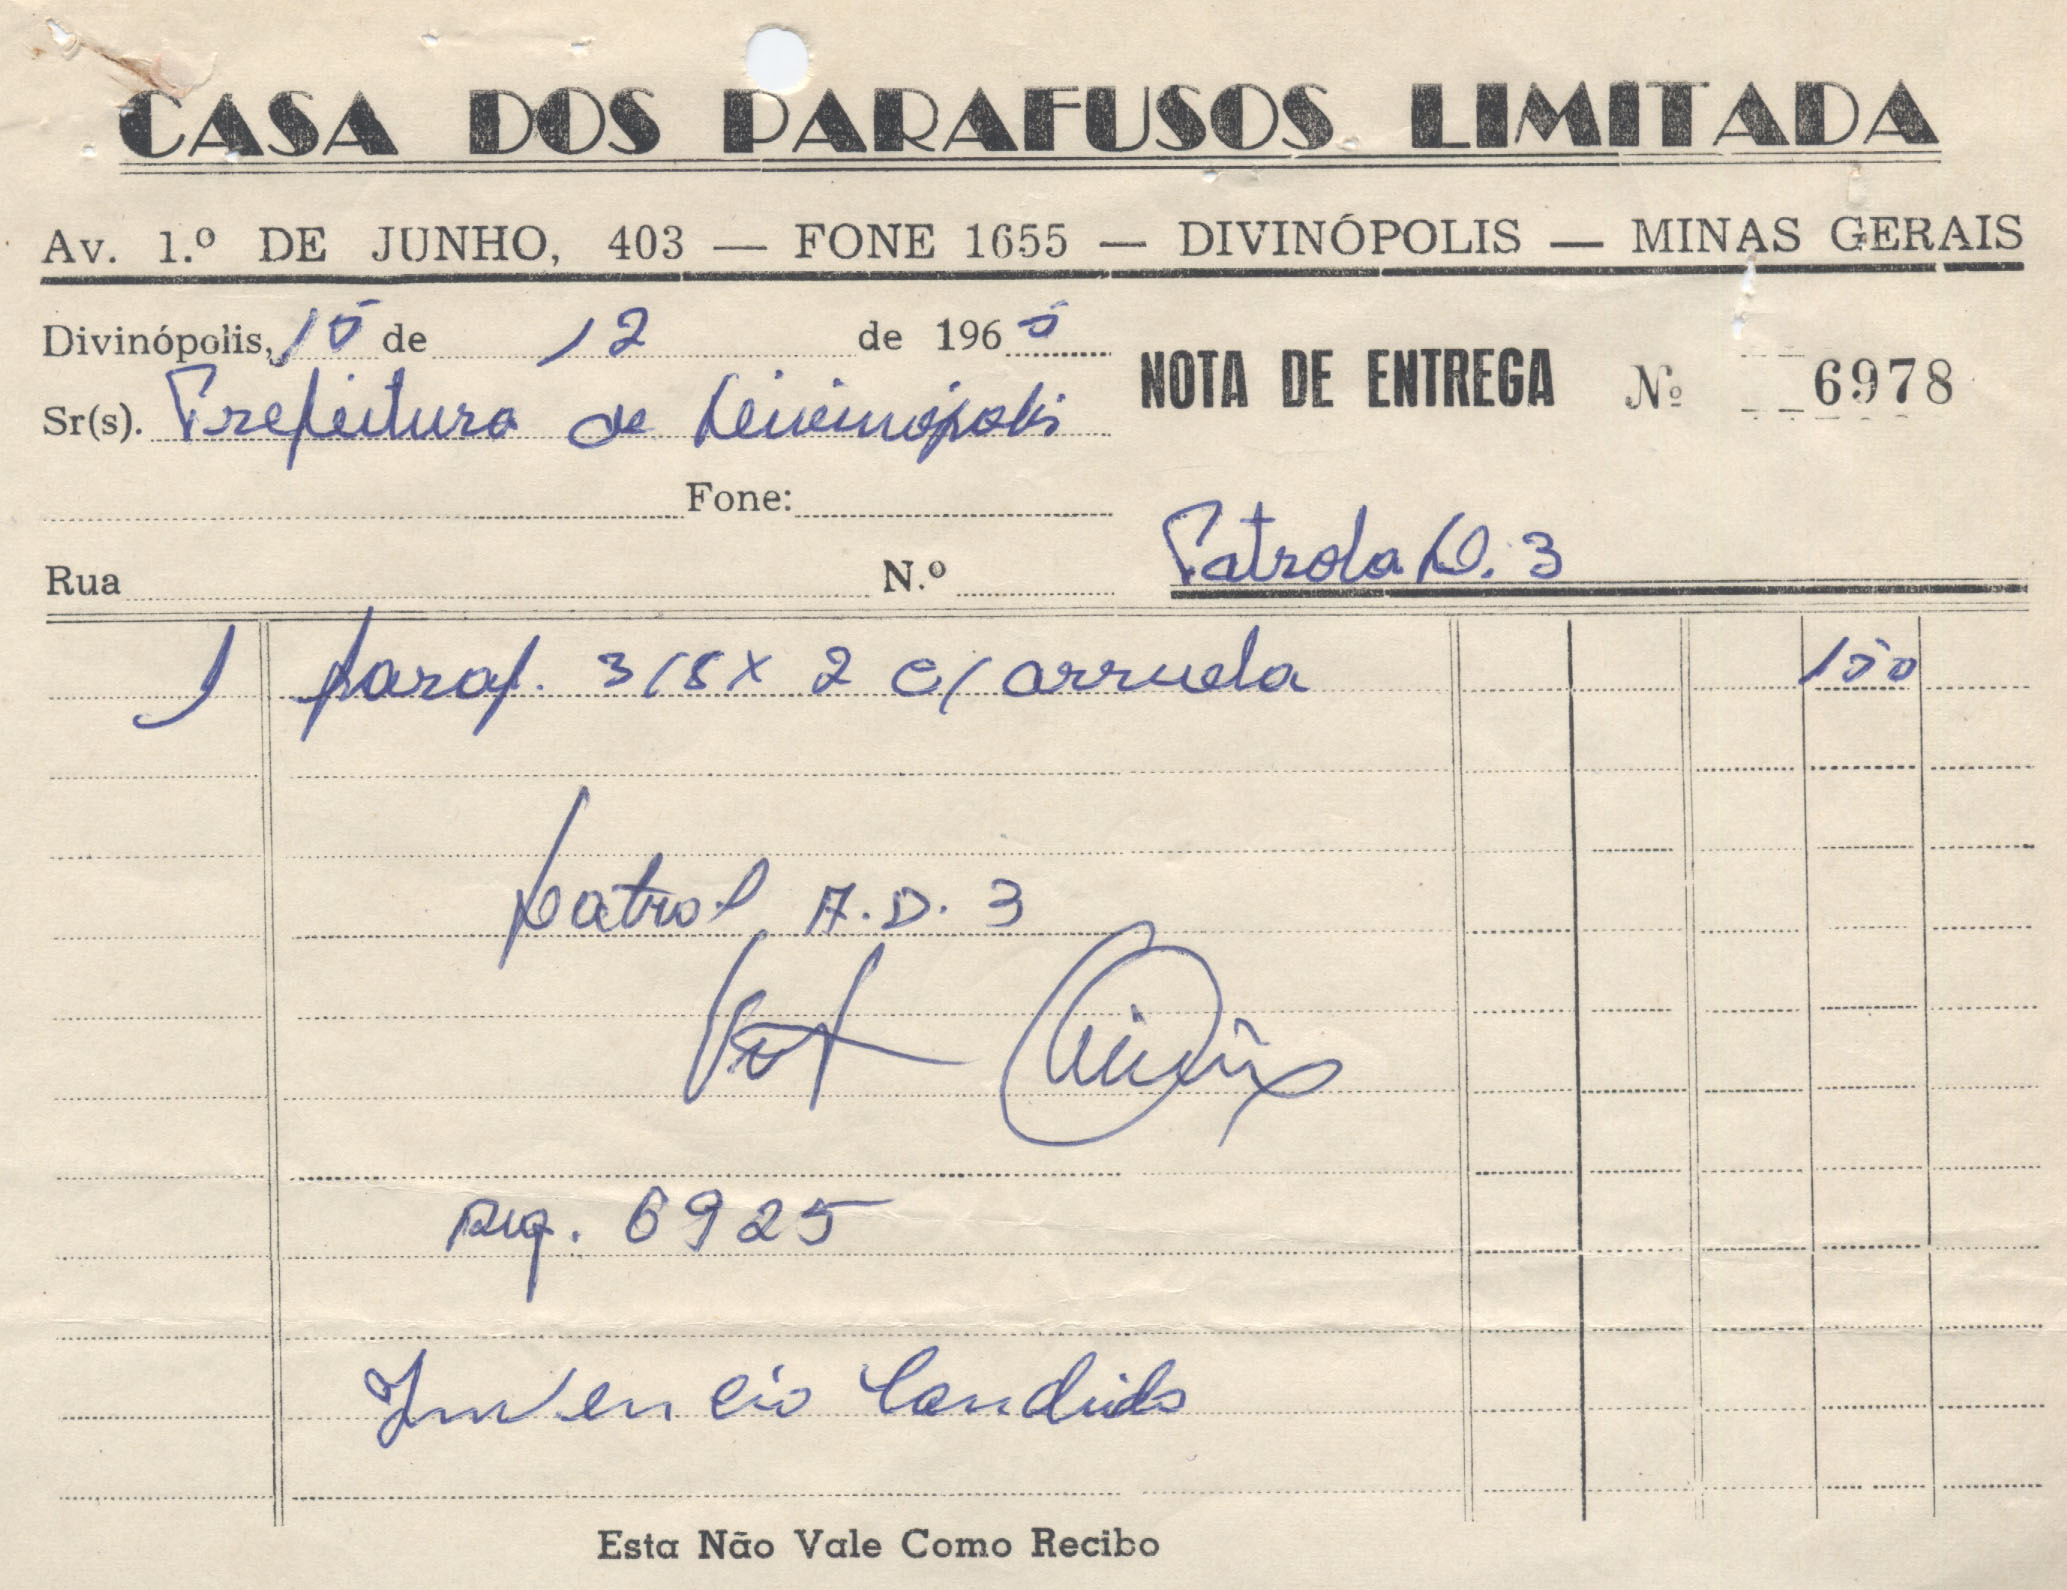 CASA DOS PARAFUSOS LIMITADA
Av. 1.º DE JUNHO, 403 — FONE 1655 — DIVINÓPOLIS — MINAS GERAIS
Divinópolis, 15 de 12 de 1965
NOTA DE ENTREGA Nº 6978
Sr(s). Prefeitura de Divinópolis
Fone:
Patrola D. 3
Rua N.º
1 paraf. 3/8 x 2 c/ arruela 150
patrol A.D. 3
req. 6925
Juvencio Candido
Esta Não Vale Como Recibo